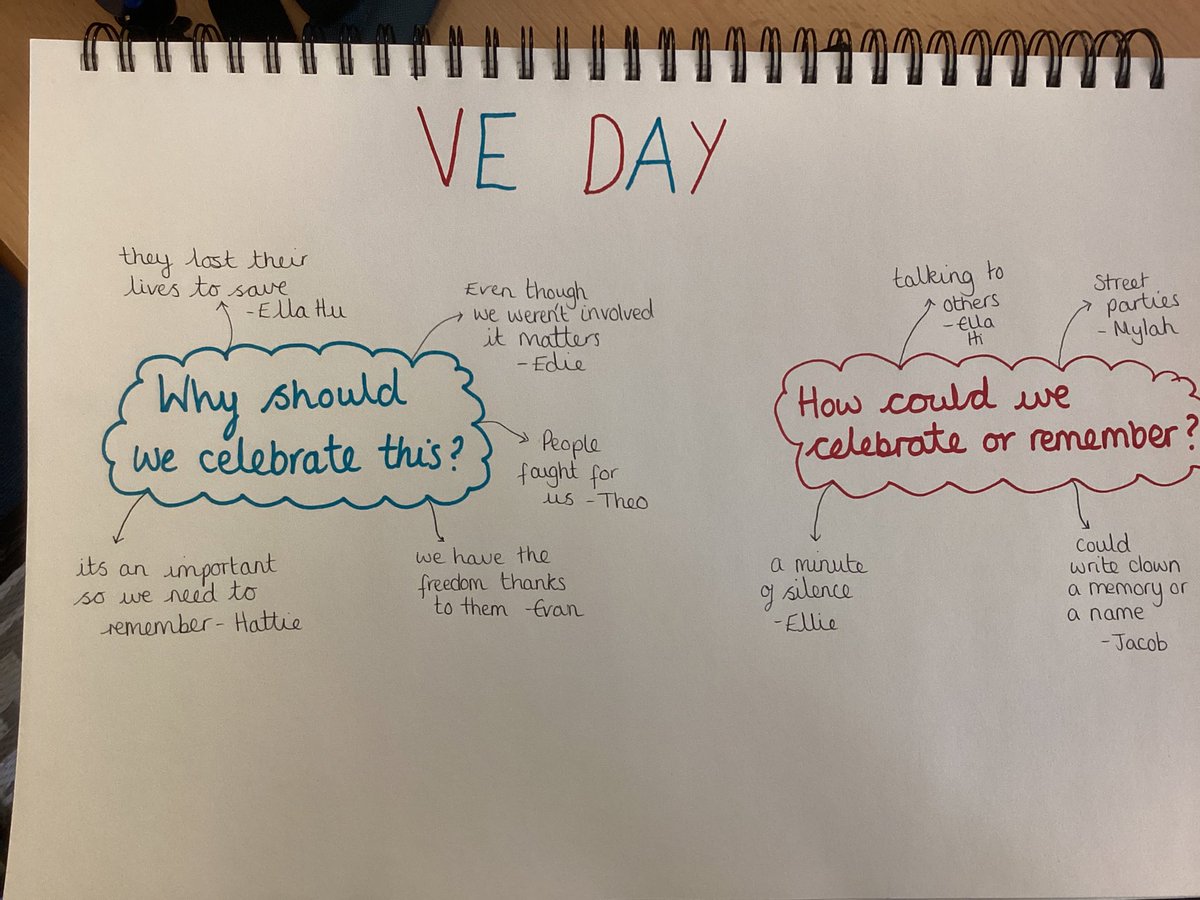 VE DAY
they lost their
lives to save
-Ella Hu
Even though
we weren't involved
it matters
-Edie
Why should
we celebrate this?
People
faught for
us -Theo
its an important
so we need to
remember - Hattie
we have the
freedom thanks
to them -Evan
talking to
others
-Ella
Hi
Street
parties
-Mylah
How could we
celebrate or remember?
a minute
of silence
-Ellie
could
write down
a memory or
a name
-Jacob